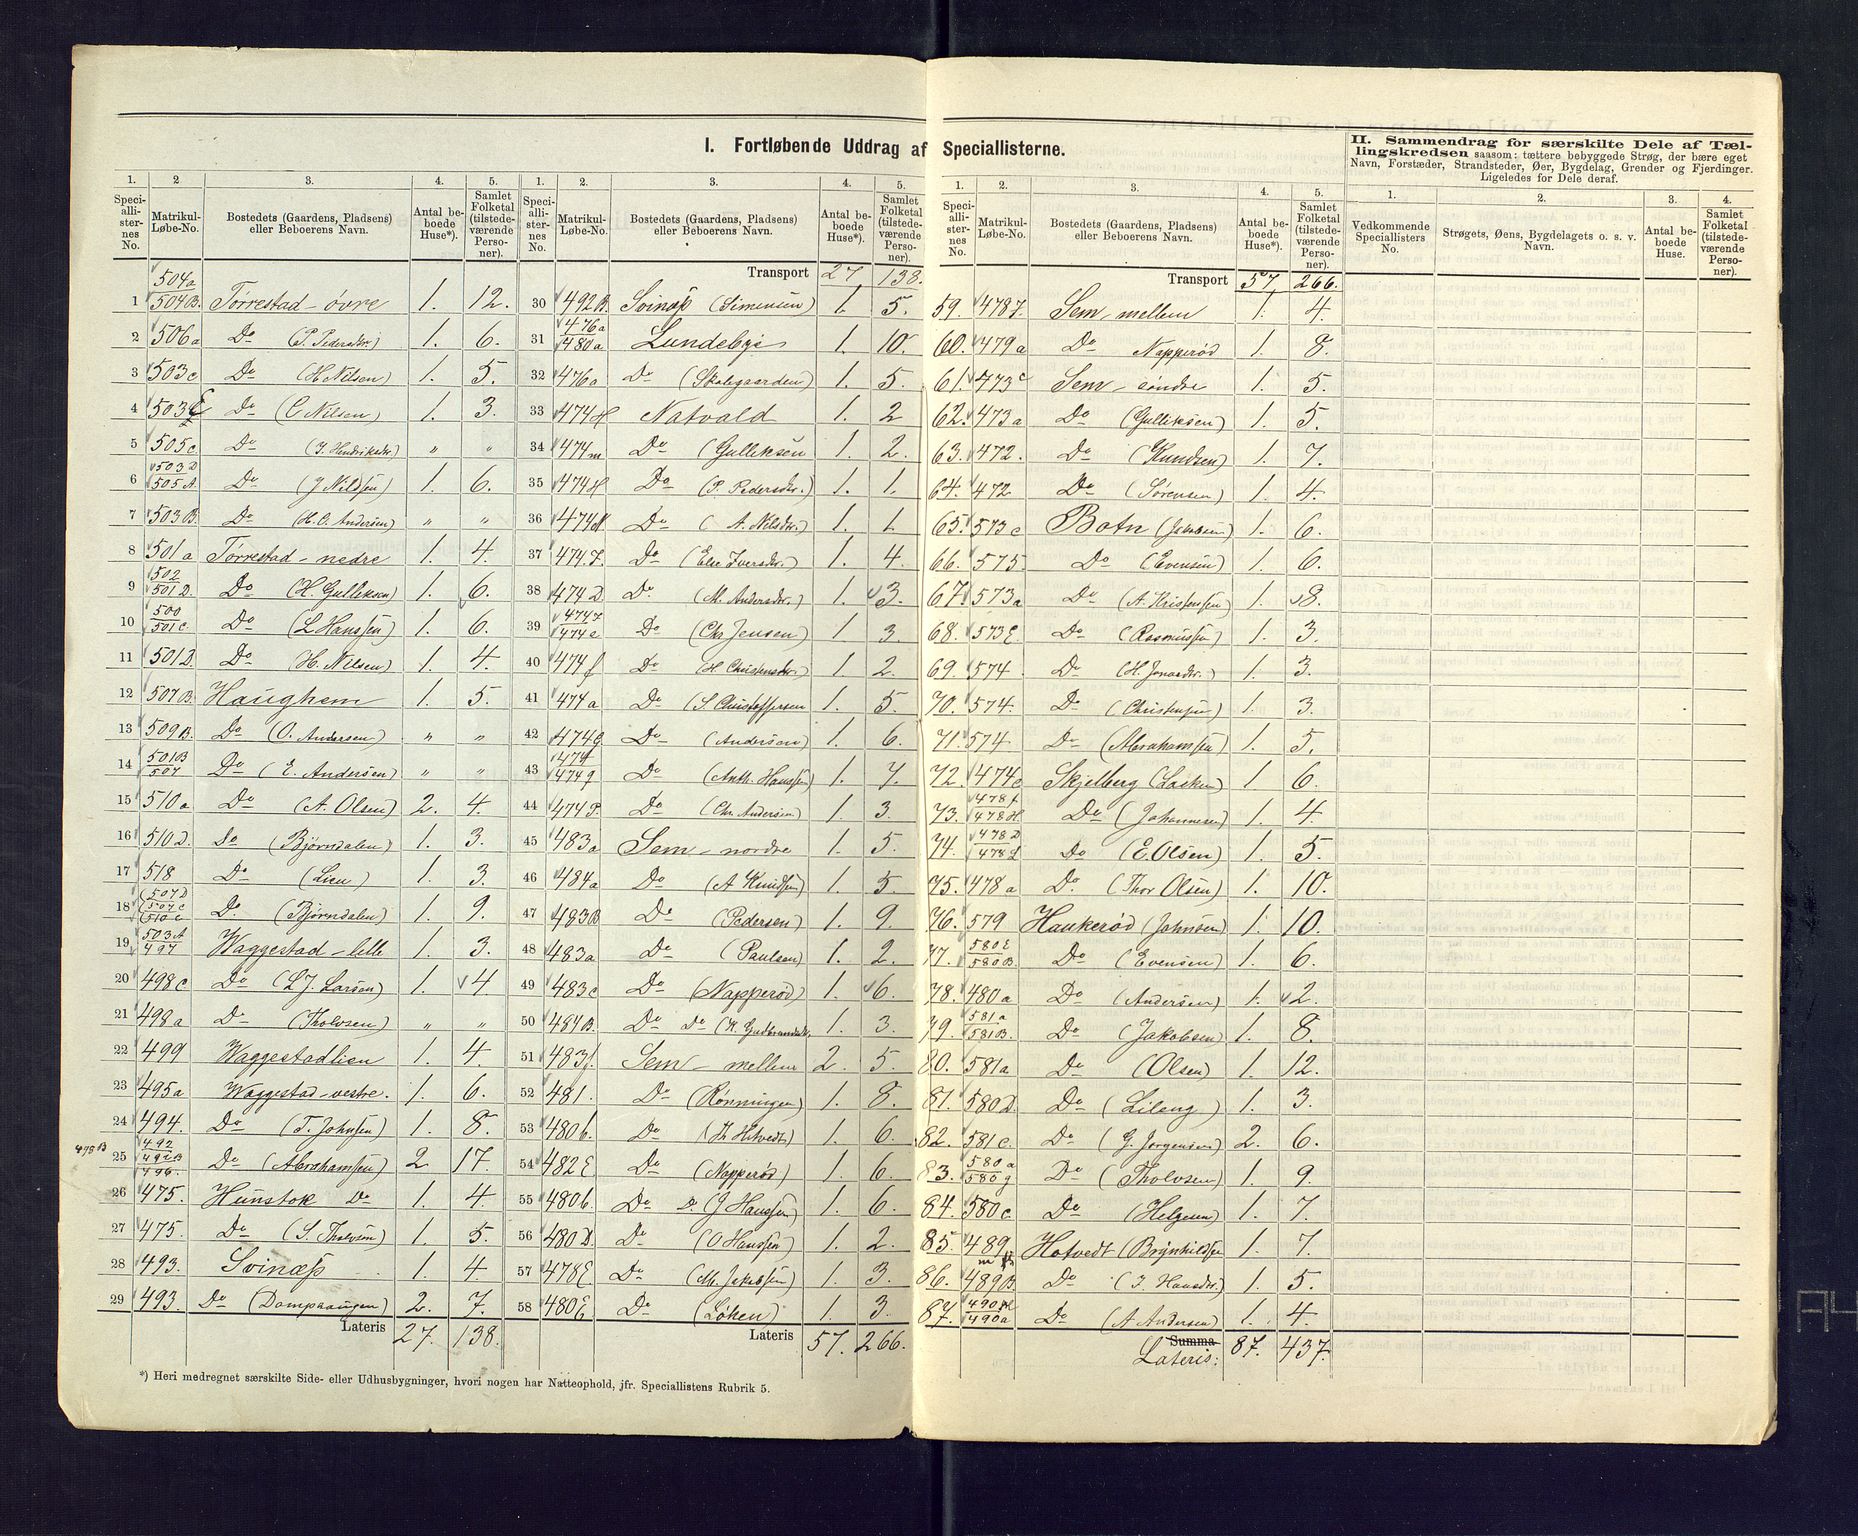 I. Fortløbende Uddrag af Speciallisterne.
II. Sammendrag for særskilte Dele af Tæl-
lingskredsen saasom: tættere bebyggede Strøg, der bære eget
Navn, Forstæder, Strandsteder, Øer, Bygdelag, Grender og Fjerdinger.
Ligeledes for Dele deraf.
1. 2 3. 4. 5.
Speciallisternes No. Matrikul-Løbe-No. Bostedets (Gaardens, Pladsens) eller Beboerens Navn. Antal beboede Huse*). Samlet Folketal (tilstedeværende Personer).
1 504a 504B. Torrestad - øvre 1. 12.
2 506a Do (P. Pedersdr.) 1. 6.
3 503c Do (H Nilsen) 1. 5.
4 503E Do (C Nilsen) 1. 3.
5 505c Do (J. Hendriksdr.) " "
6 503D 505A. Do (J Nildsen) 1. 6.
7 503B. Do (H. O. Andersen) " "
8 501a Torrestad - nedre 1. 4.
9 502 501D. Do (H. Gulliksen) 1. 6.
10 500 501c. Do (L Hanssen) 1. 6.
11 501D. Do (H. Nilsen) 1. 4.
12 507B. Haughem 1. 5.
13 509B. Do (O. Andersen) " "
14 501B 507 Do (E. Andersen) " "
15 510a Do (A. Olsen) 2. 4.
16 510D. Do (Bjørndalen) 1. 3.
17 518 Do (Lien) 1. 3.
18 507D 507c 510c Do (Bjørndalen) 1. 9.
19 503A 497 Waggestad - lille 1. 3.
20 498c Do (L J. Larsen) 1. 4.
21 498a Do (Tholvsen) " "
22 499 Waggestadlien 1. 4.
23 495a Waggestad - vestre. 1. 6.
24 494. Do (T. Johnsen) 1. 8.
478B
25 492 492B 496. Do (Abrahamsen) 2 17.
26 475. Hunstok Do 1. 4.
27 475. Do (S. Tholvsen) 1. 5.
28 493. Svinæs 1. 4.
29 493. Do (Dampsaugen) 2. 7.
Lateris 27. 138.
*) Heri medregnet særskilte Side- eller Udhusbygninger, hvori nogen har Natteophold, jfr. Speciallistens Rubrik 5.
1. 2. 3. 4. 5.
Speciallisternes No. Matrikul-Løbe-No. Bostedets (Gaardens, Pladsens) eller Beboerens Navn. Antal beboede Huse*). Samlet Folketal (tilstedeværende Personer).
Transport 27 138.
30 492B. Svinæs (Simensen) 1. 5.
31 476a 480a Lundebye 1. 10.
32 476a Do (Skolegaarden) 1. 5.
33 474H Natvald 1. 2
34 474m Do (Gulliksen 1. 2.
35 474H Do (P. Pedersdr.) 1. 1.
36 474N Do (A. Nilsdtr.) 1. 1
37 474.F. Do (Else Iversdr.) 1. 4.
38 474D Do (M. Andersdr.) 1. 3.
39 474F 474e Do (Chr Jensen) 1. 3.
40 474f Do (H Christensdr.) 1. 2.
41 474a Do (S. Christoffersen 1. 5.
42 474G Do (Andersen) 1. 6.
43 474 474g Do (Anth. Hanssen) 1. 7.
44 474P. Do (Chr. Andersen) 1. 3.
45 483a Sem - nordre 1. 5.
46 484a Do (A Knudsen) 1. 5.
47 483B Do (Pedersen) 1. 9.
48 483a Do (Paulsen) 1. 2.
49 483c Do (Napperød) 1. 6.
50 484B. Do Do (K. Gudbrandsdr. 1. 3.
51 483f. Sem - mellem 2. 5.
52 481. Do (Rønningen) 1. 8.
53 480b. Do (Th Hitvedt) 1. 6.
54 482E Do (Napperød) 1. 6.
55 480b. Do Do (J Hanssen) 1. 6.
56 480D. Do (O Hanssen) 1. 2.
57 478E Do (Mh. Jakobsen) 1. 3.
58 480E Do (Løken) 1. 3.
Lateris 57. 266.
1. 2. 3. 4. 5.
Speciallisternes No. Matrikul-Løbe-No. Bostedets (Gaardens, Pladsens) eller Beboerens Navn. Antal beboede Huse*). Samlet Folketal (tilstedeværende Personer).
Transport 57 266.
59. 478F. Sem - mellem 1. 4.
60. 479a Do Napperød 1. 8.
61. 473c Sem - søndre 1. 5.
62. 473a Do (Gulliksen) 1. 5.
63. 472. Do (Knudsen) 1. 7.
64. 472 Do (Sørensen) 1. 4.
65. 573c Botn (Jakobsen) 1. 6.
66. 575. Do (Evensen) 1. 6.
67. 573a Do (A. Kristensen) 1. 8.
68. 573E. Do (Rasmussen) 1. 3.
69. 574. Do (H. Jonasdr.) 1. 3.
70. 574. Do (Christensen) 1. 3.
71. 574 Do (Abrahamsen) 1. 5.
72. 474c Skjelberg (Larsen) 1 6.
73. 478f 478H Do (Johannesen) 1. 4.
74. 478D 478L Do (E. Olsen) 1. 5.
75. 478a Do (Thor Olsen) 1. 10.
76. 579 Haukerød (Johnsen) 1. 10.
77. 580E 580B. Do (Evensen) 1. 6.
78. 480a Do (Andersen) 1. 2.
79. 581a 581B. Do (Jakobsen) 1. 8.
80. 581a Do (Olsen) 1. 12.
81. 580D. Do (Lileng) 1. 3.
82. 581c. Do (G. Jørgensen) 2. 6.
83. 580a 580g Do (Tholvsen) 1. 9.
84. 580c Do (Helgesen) 1. 7.
85. 489m Hotvedt (Brynhildsen 1. 7.
86. 489B. Do (J. Hansdr.) 1. 5.
87. 490M 490a Do (A Andersen) 1. 4.
Summa
Lateris: 87. 437.
1. 2. 3. 4.
Vedkommende Speciallisters No. Strøgets, Øens, Bygdelagets o. s. v. Navn. Antal beboede Huse. Samlet Folketal (tilstedeværende Personer).